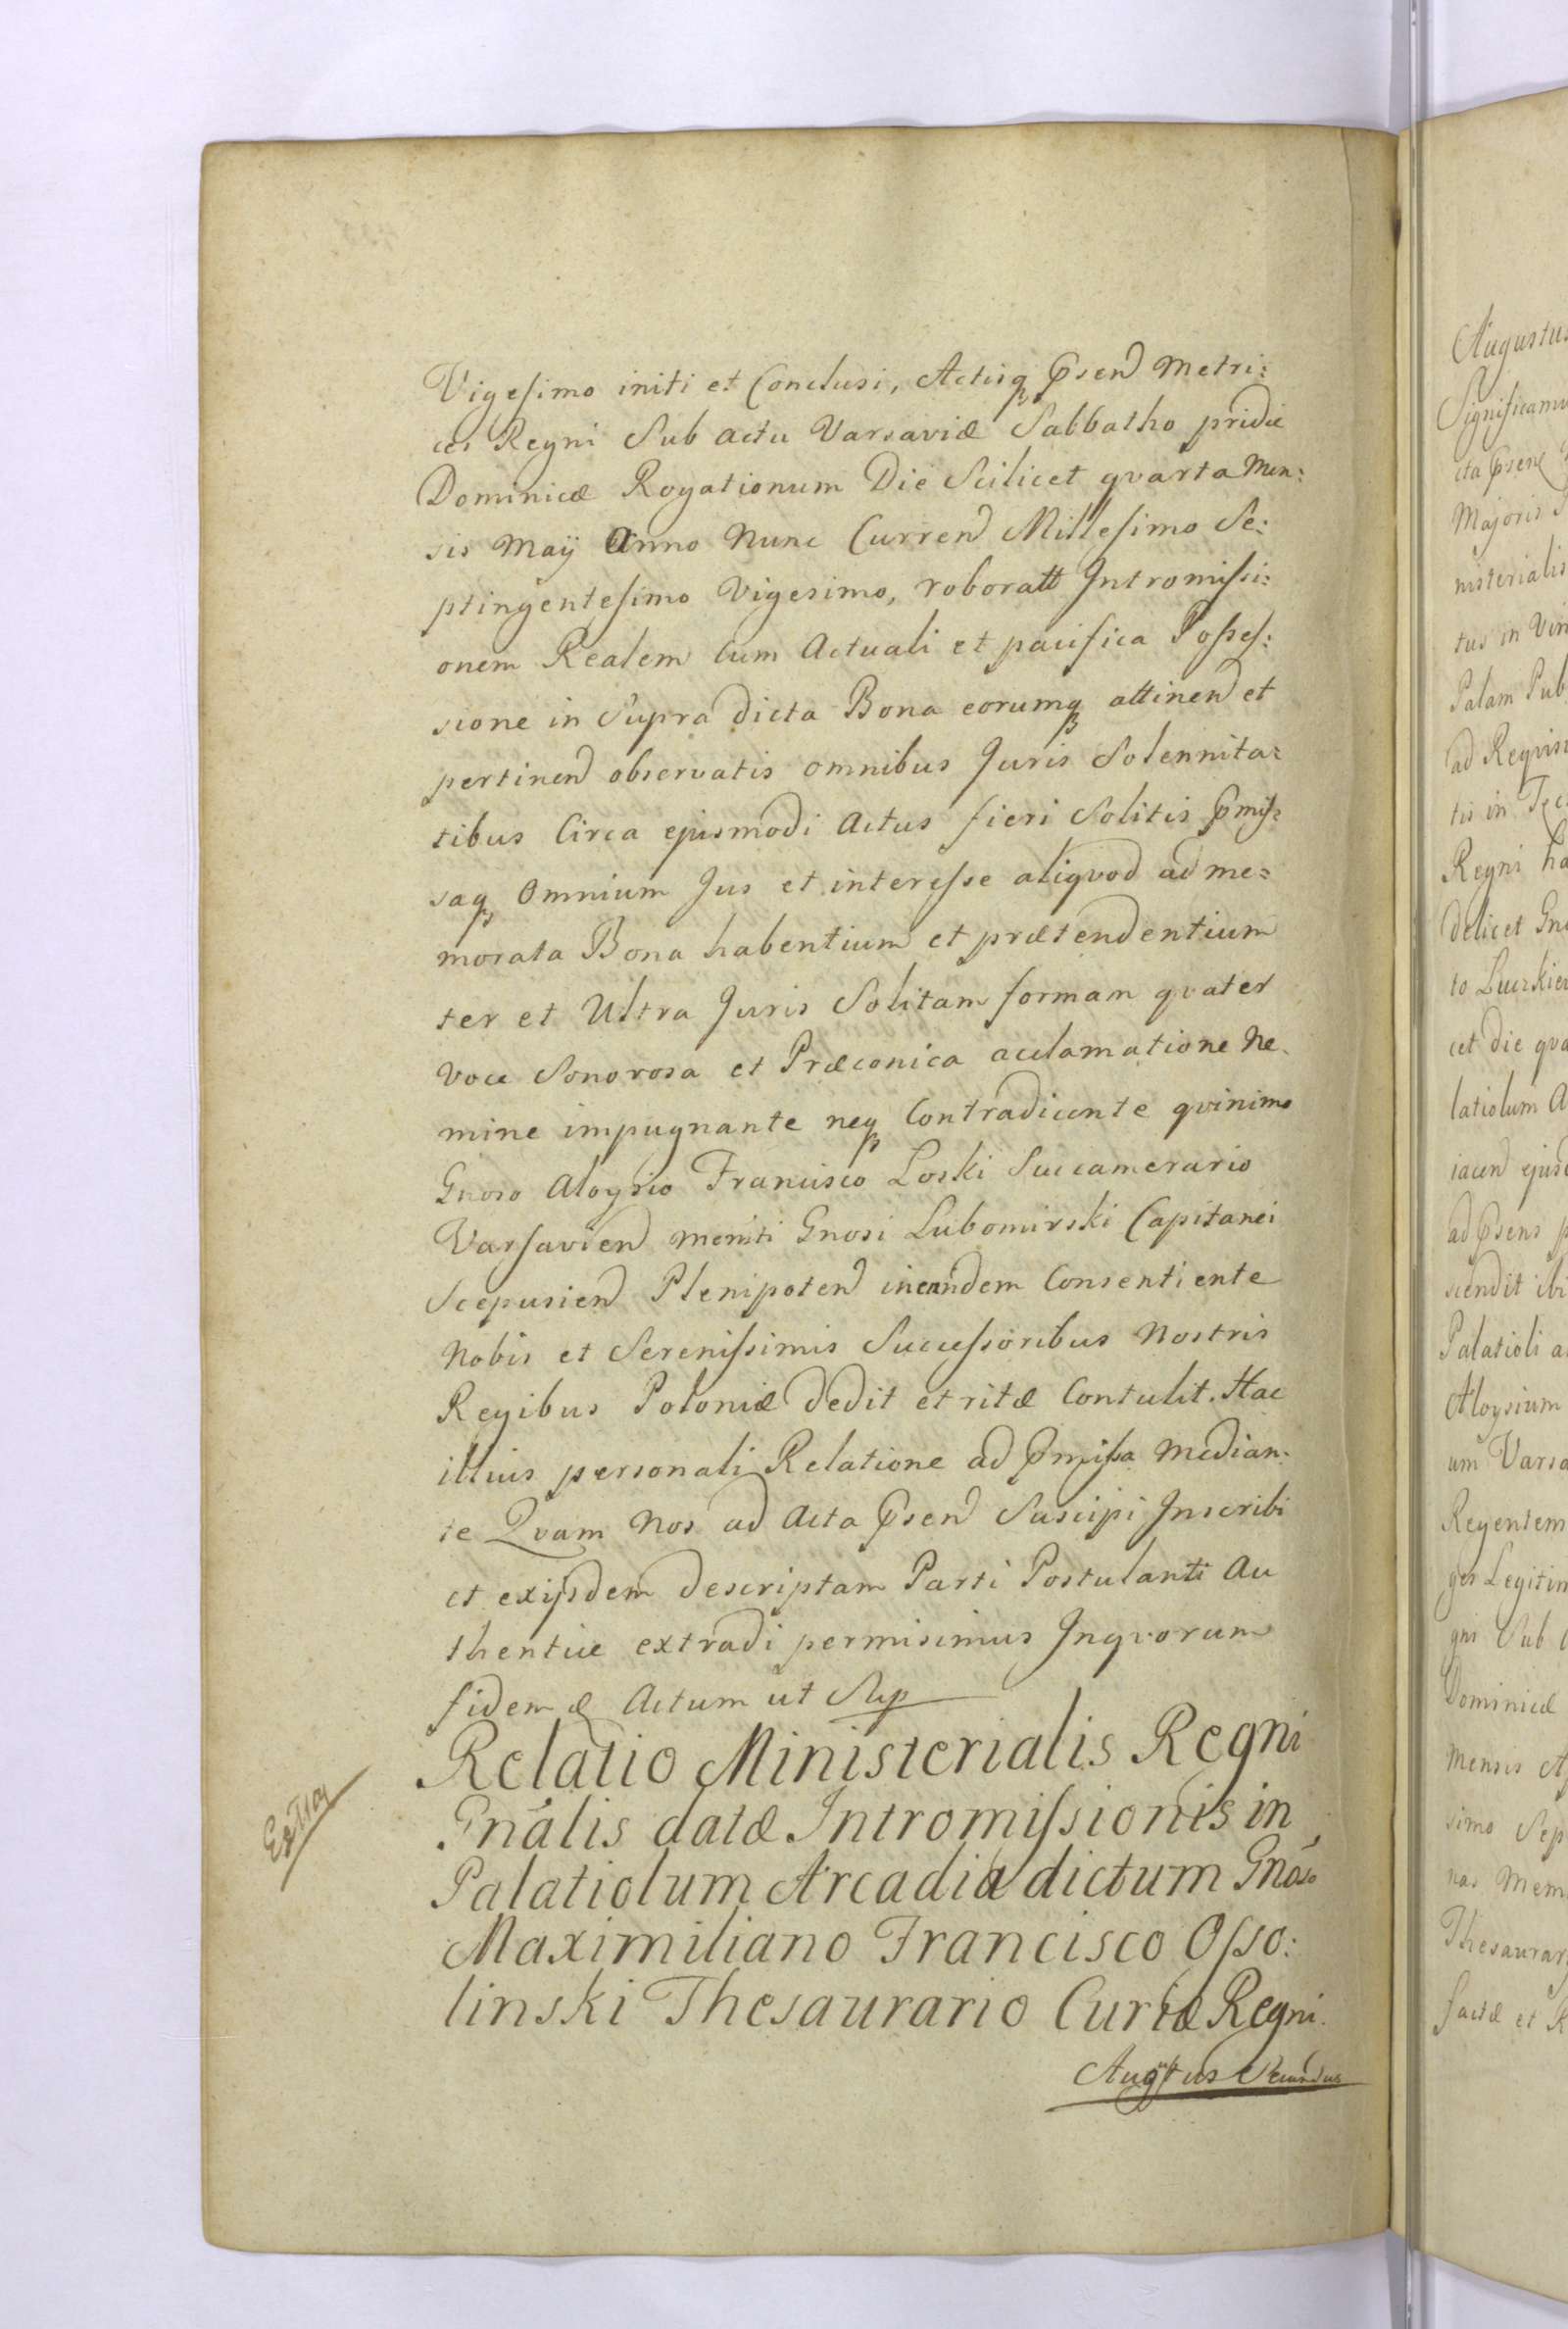 Vigesimo initi et Conclusi, Actisq Psend Metri:
ces Regni Sub actu Varsaviæ Sabbatho pridie
Dominicæ Rogationum Die Scilicet qvarta Men:
sis Maÿ Anno Nunc Currend Millesimo Se:
ptingentesimo Vigesimo, roboratt Intromissi:
onem Realem Cum Actuali et pacifica Posses:
sione in Supra dicta Bona eorumq attinend et
pertinend observatis omnibus Juris Solennita:
tibus Circa ejusmodi Actus fieri Solitis Pmis:
saq Omnium Jus et interesse aliqvod ad me:
morata Bona habentium et prætendentium
ter et Ultra Juris Solitam formam qvater
voce Sonorosa et Præconica acclamatione Ne
mine impugnante neq Contradicente qvinimo
Gnoso Aloysio Francisco Loski Succamerario
Varsaviend memti Gnosi Lubomirski Capitanei
Scepusiend Plenipotend ineandem Consentiente
Nobis et Serenissimis Successoribus Nostris
Regibus Poloniæ dedit et ritæ Contulit. Hac
illius personali Relatione ad Pmissa Median:
te Qvam Nos ad Acta Psend Suscipi Inscribi
et exijsdem descriptam Parti Postulanti Au
thentice extradi permisimus Inqvorum
fidem & Actum ut Sup
Relatio Ministerialis Regni
Gnâlis datæ Intromissionis in
Palatiolum Arcadia dictum Gnôso
Maximiliano Francisco Osso:
linski Thesaurario Curiæ Regni.
Augustus Secundus
Augustus
Significamus
Majoris
nisterialis
tus in
Palam Pub
ad Reqvis
tis in
Regni ha
delicet Gno
cet die qva
latiolum A
iacend ejusd
ad Psens p
scendit ibi
Palatioli a
Aloysium
um Varsa
Regentem
ges Legitim
gni Sub
Dominicæ
Mensis
simo Sep
nas Mem
Thesaurar
factæ et R